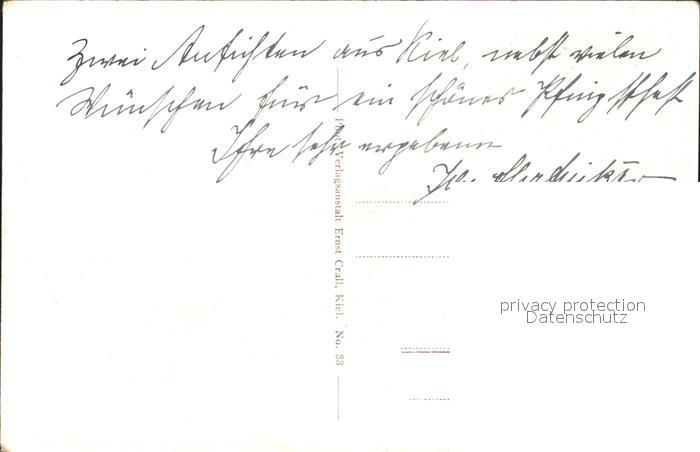 Zwei Ansichten aus Kiel, nebst vielen
Wünschen für ein schönes Pfingstfest
Ihre sehr ergebene
Phot. Verlagsanstalt Ernst Crall, Kiel. No. 33
privacy protection
Datenschutz